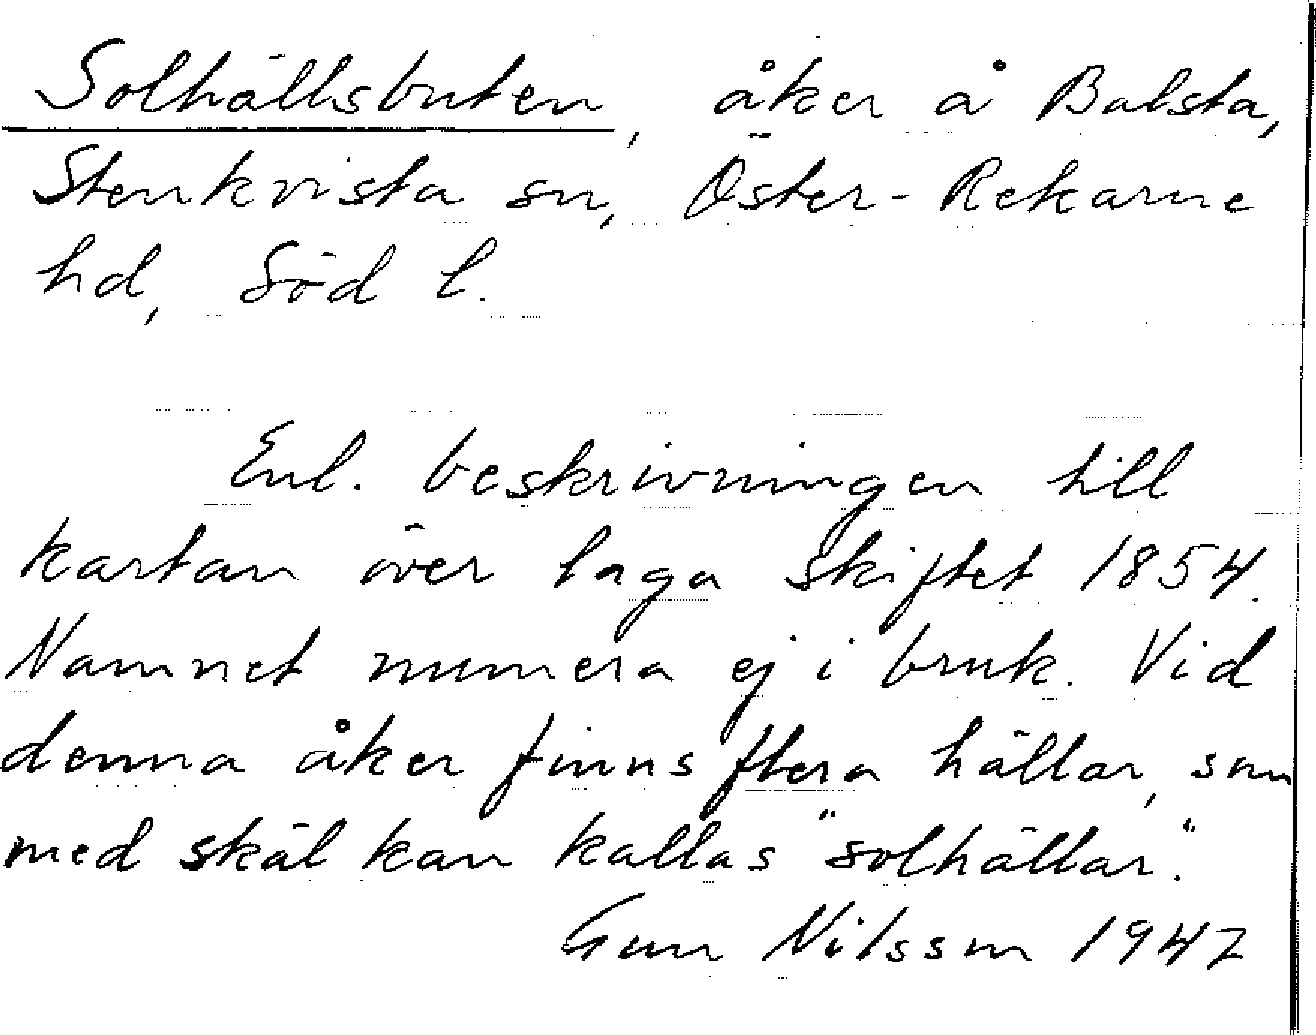 Solhällsbiten, åker å Balsta,
Stenkvista sn, Öster-Rekarne
hd, Söd l.
Enl. beskrivningen till
kartan över laga skiftet 1854.
Namnet numera ej i bruk. Vid
denna åker finns flera hällar, som
med skäl kan kallas "solhällar".
Gun Nilsson 1947